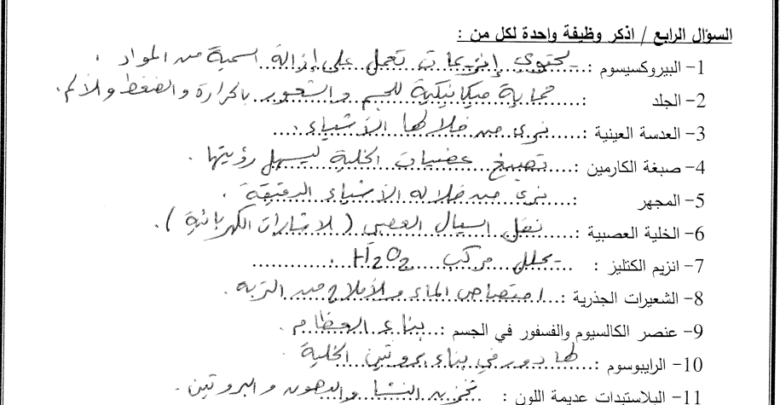 السؤال الرابع / اذكر وظيفة واحدة لكل من :
1- البيروكسيسوم : يحتوي إنزيمات تعمل على إزالة السمية من المواد .
2- الجلد : حماية ميكانيكية للجسم والشعور بالحرارة والضغط والألم .
3- العدسة العينية : نرى من خلالها الأشياء .
4- صبغة الكارمين : تصبغ عضيات الخلية ليسهل رؤيتها .
5- المجهر : نرى من خلاله الأشياء الدقيقة .
6- الخلية العصبية : نقل السيال العصبي ( الاشارات الكهربائية ) .
7- انزيم الكتليز : يحلل مركب H2O2 .
8- الشعيرات الجذرية : امتصاص الماء والأملاح من التربة .
9- عنصر الكالسيوم والفسفور في الجسم : بناء العظام .
10- الرايبوسوم : لها دور في بناء بروتين الخلية .
11- البلاستيدات عديمة اللون : تخزين النشا والدهون والبروتين .